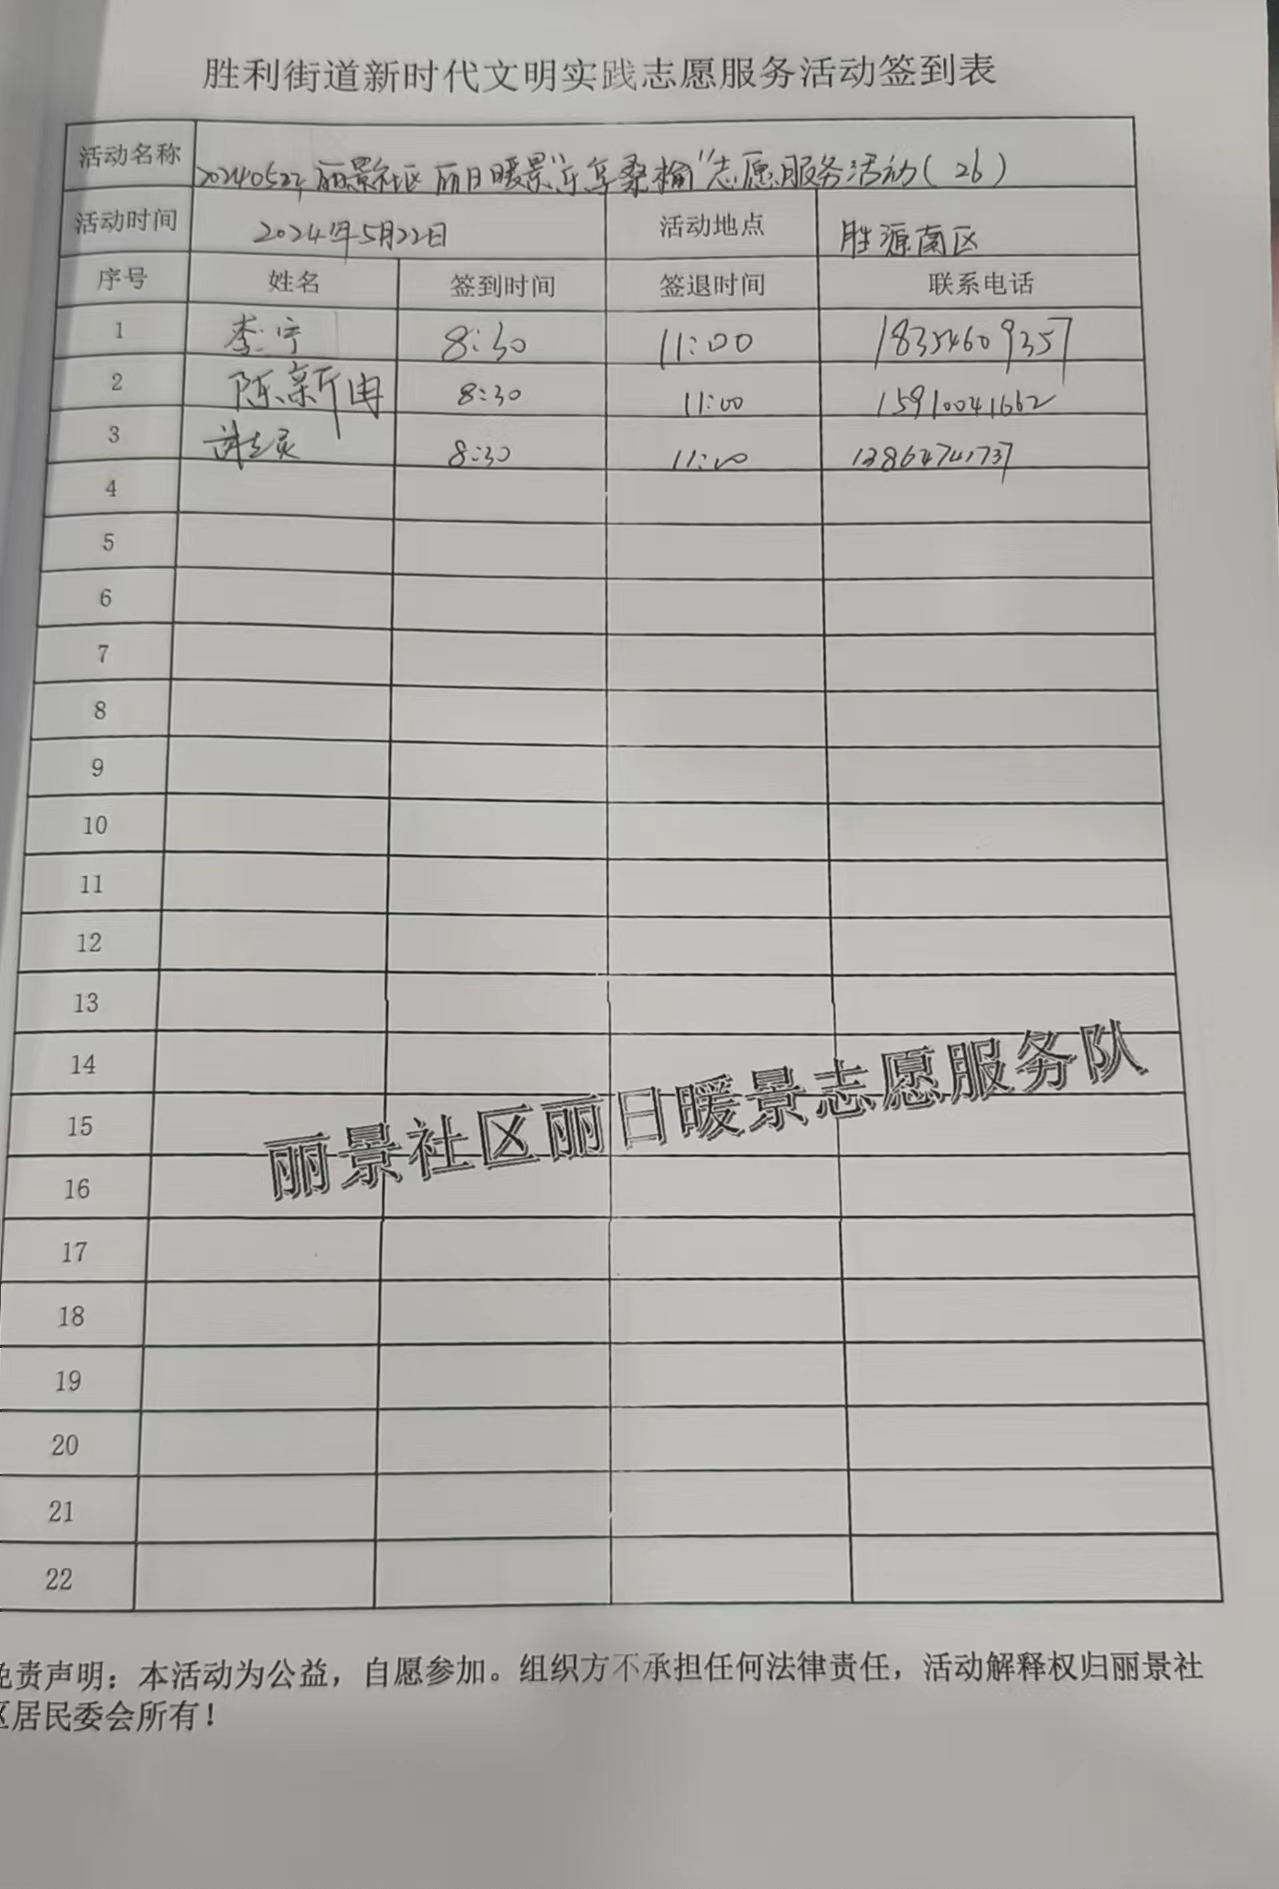 胜利街道新时代文明实践志愿服务活动签到表
活动名称 20240522丽景社区丽日暖景"乐享桑榆"志愿服务活动(26)
活动时间 2024年5月22日 活动地点 胜源南区
序号 姓名 签到时间 签退时间 联系电话
1 李宁 8:30 11:00 18354609357
2 陈新 8:30 11:00 15910041662
3 8:30 11:00
4
5
6
7
8
9
10
11
12
13
14
15
16
17
18
19
20
21
22
丽景社区丽日暖景志愿服务队
免责声明：本活动为公益，自愿参加。组织方不承担任何法律责任，活动解释权归丽景社
区居民委会所有！